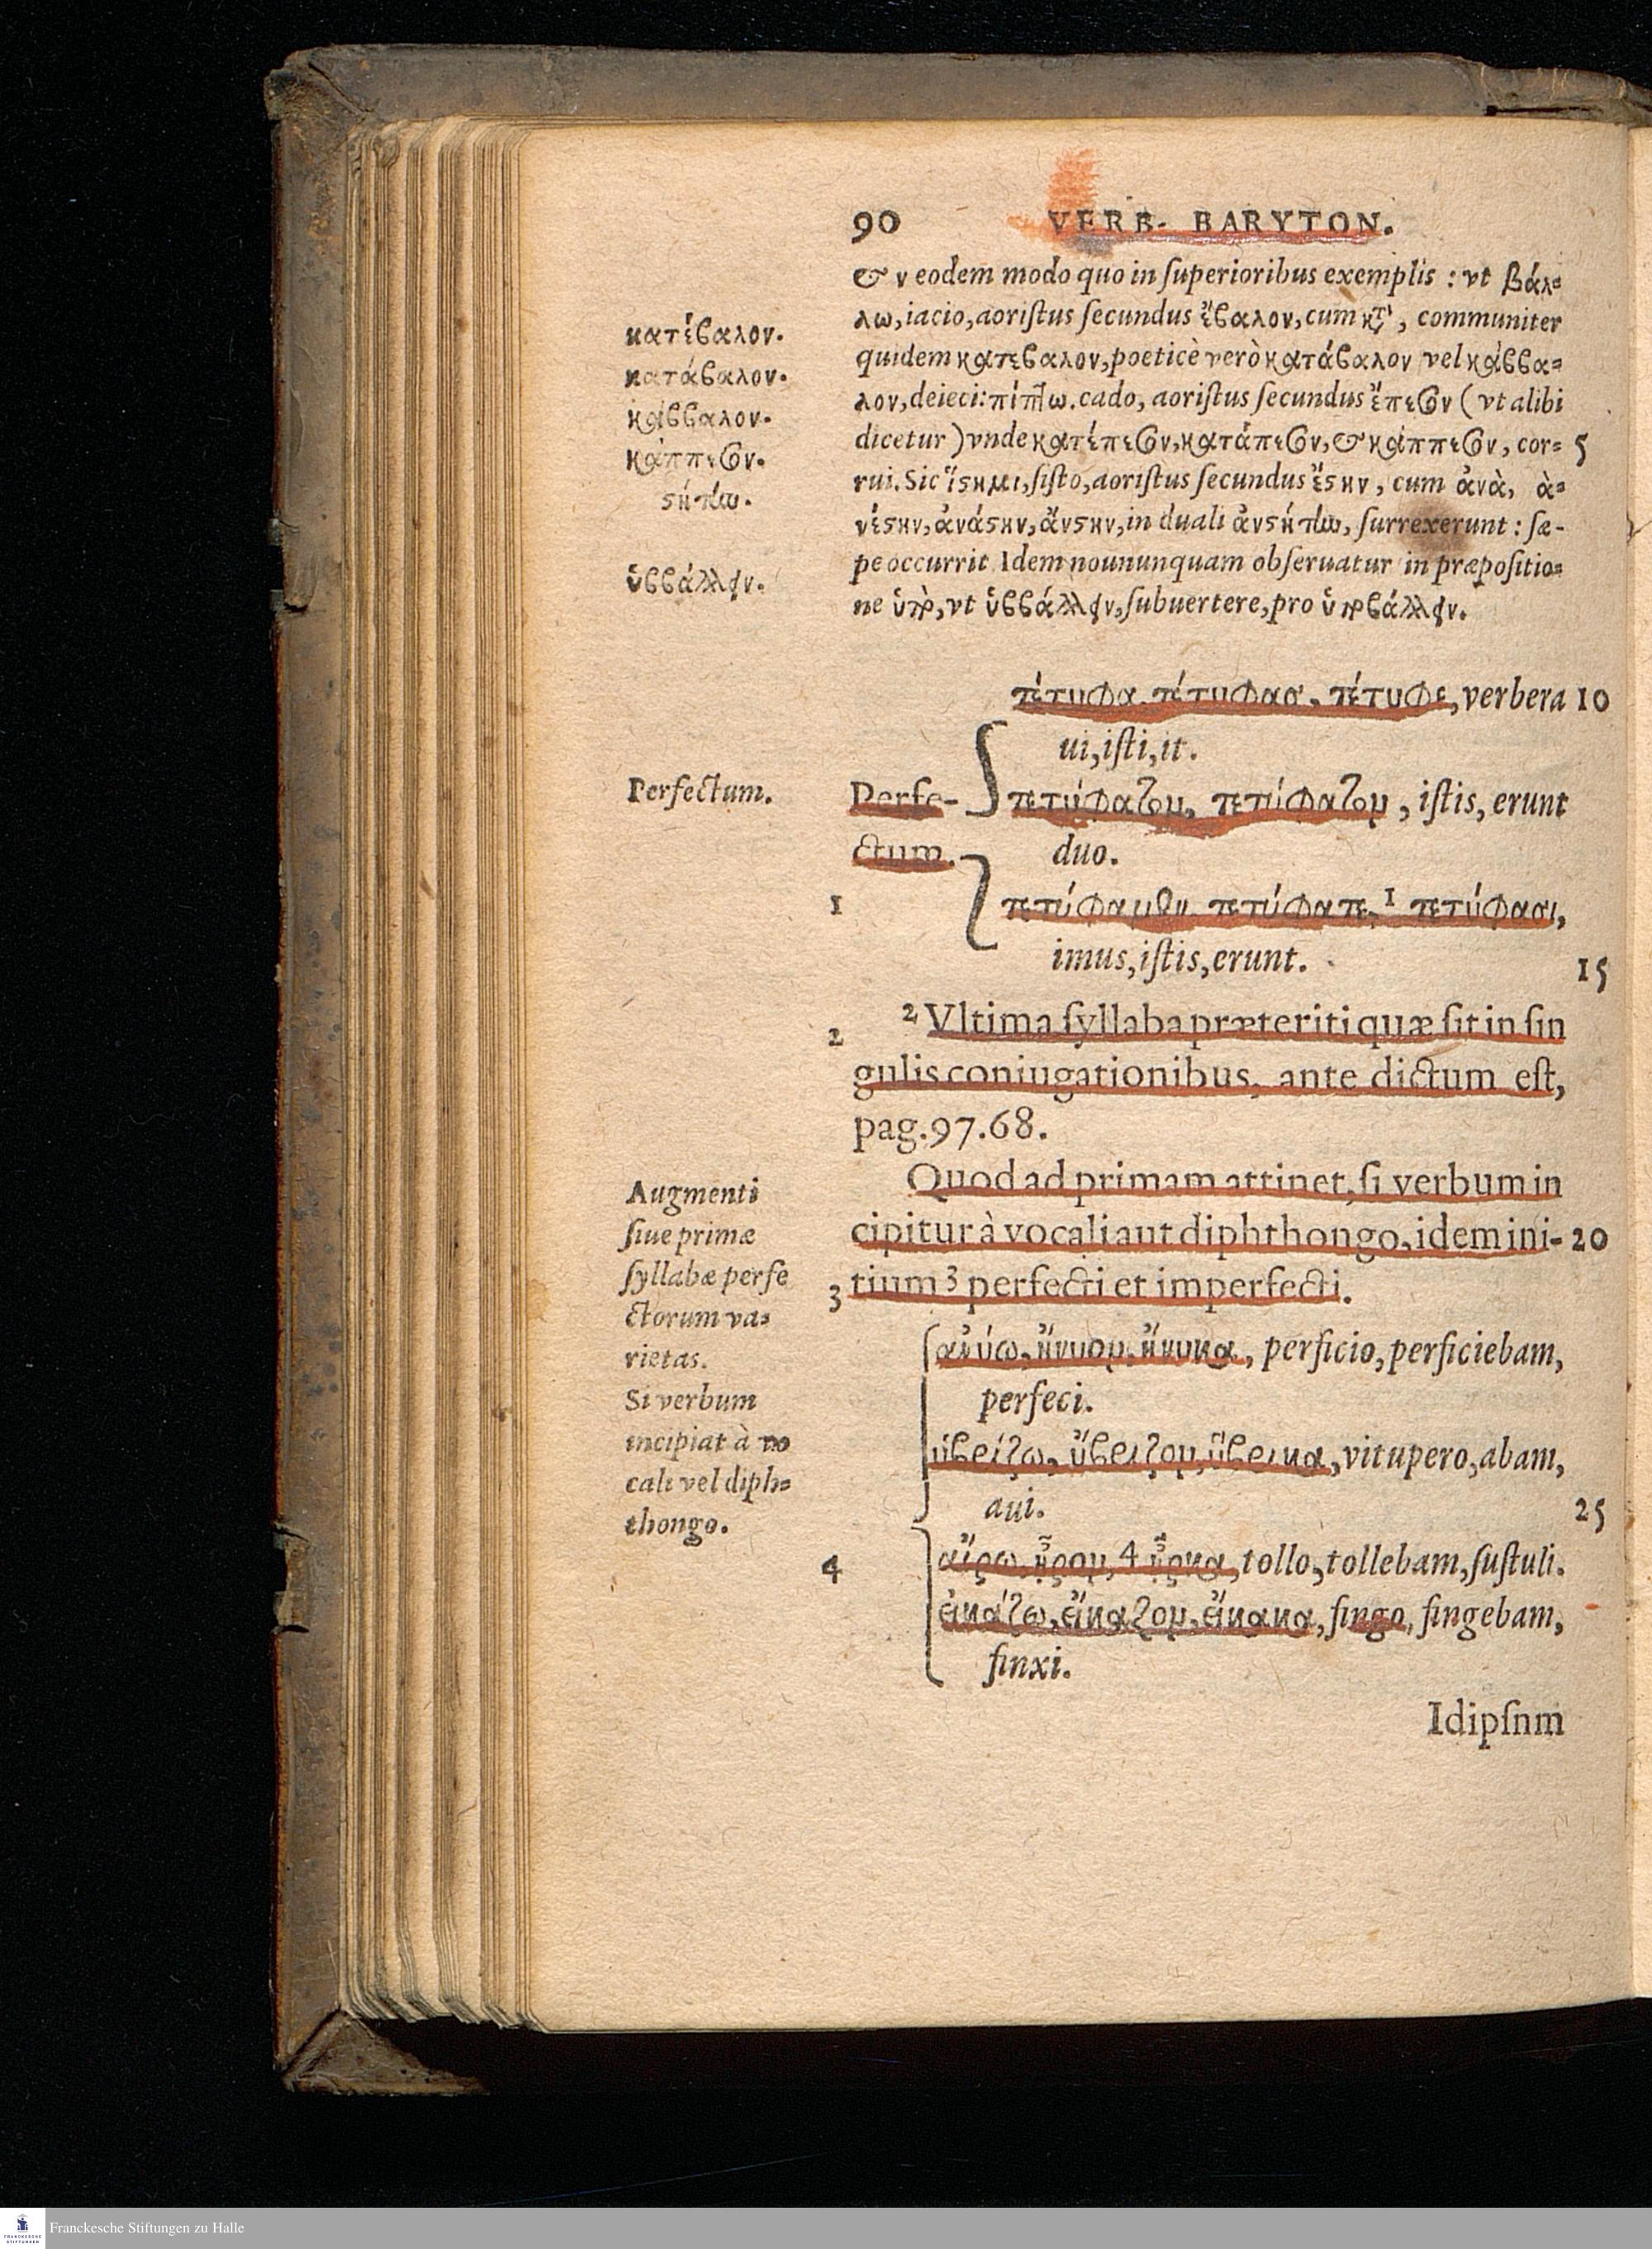 90 VERB- BARYTON.
& ν eodem modo quo in superioribus exemplis : vt βάλ=
λω, iacio, aoristus secundus ἔβαλον, cum κτ̀, communiter
quidem κατεβαλον, poeticè verò κατάβαλον vel κάββα=
λον, deieci: πίπτω. cado, aoristus secundus ἔπεσον ( vt alibi
dicetur ) vnde κατέπεσον, κατάπεσον, & κάππεσον, cor= 5
rui. Sic ἵστημι, sisto, aoristus secundus ἔστην, cum ἀνὰ, ἀ=
νέστην, ἀνάστην, ἄνστην, in duali ἀνστήτην, surrexerunt : sæ-
pe occurrit. Idem noununquam obseruatur in præpositio=
ne ὑπὸ, vt ὑββάλλειν, subuertere, pro ὑποβάλλειν.
κατέβαλον.
κατάβαλον.
κάββαλον.
κάππεσον.
στήτην.
ὑββάλλειν.
τέτυφα, τέτυφας, τέτυφε, verbera 10
ui, isti, it.
Perfectum.
Perfe- τετύφατον, τετύφατον, istis, erunt
ctum. duo.
1 τετύφαμεν, τετύφατε, 1 τετύφασι,
imus, istis, erunt. 15
2 2 Vltima syllaba præteriti quæ sit in sin
gulis coniugationibus, ante dictum est,
pag. 97. 68.
Quod ad primam attinet, si verbum in
cipitur à vocali aut diphthongo, idem ini- 20
3 tium 3 perfecti et imperfecti.
Augmenti
siue primæ
syllabæ perfe
ctorum va=
rietas.
Si verbum
incipiat à vo
cali vel diph=
thongo.
ἀνύω, ἤνυον, ἤνυκα, perficio, perficiebam,
perfeci.
ὑβρίζω, ὕβριζον, ὕβρικα, vitupero, abam,
aui. 25
4 αἴρω, ᾖρον, 4 ᾖρκα, tollo, tollebam, sustuli.
εἰκάζω, εἴκαζον, εἴκακα, fingo, fingebam,
finxi.
Idipsnm
Franckesche Stiftungen zu Halle